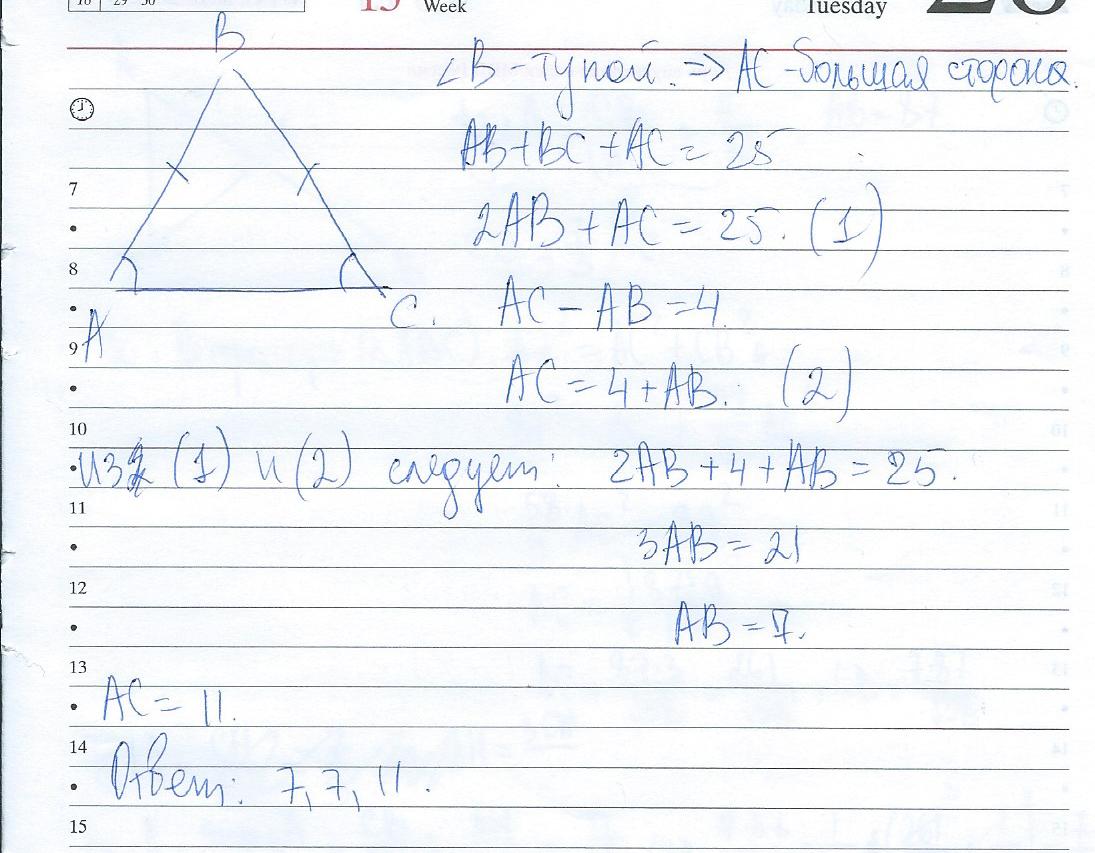 18 29 30
15 Week
Tuesday
B
∠B - тупой. => AC - большая сторона.
AB + BC + AC = 25
7
2AB + AC = 25. (1)
8
AC - AB = 4
A
C.
9
AC = 4 + AB. (2)
10
из (1) и (2) следует: 2AB + 4 + AB = 25.
11
3AB = 21
12
AB = 7.
13
AC = 11.
14
Ответ: 7, 7, 11.
15